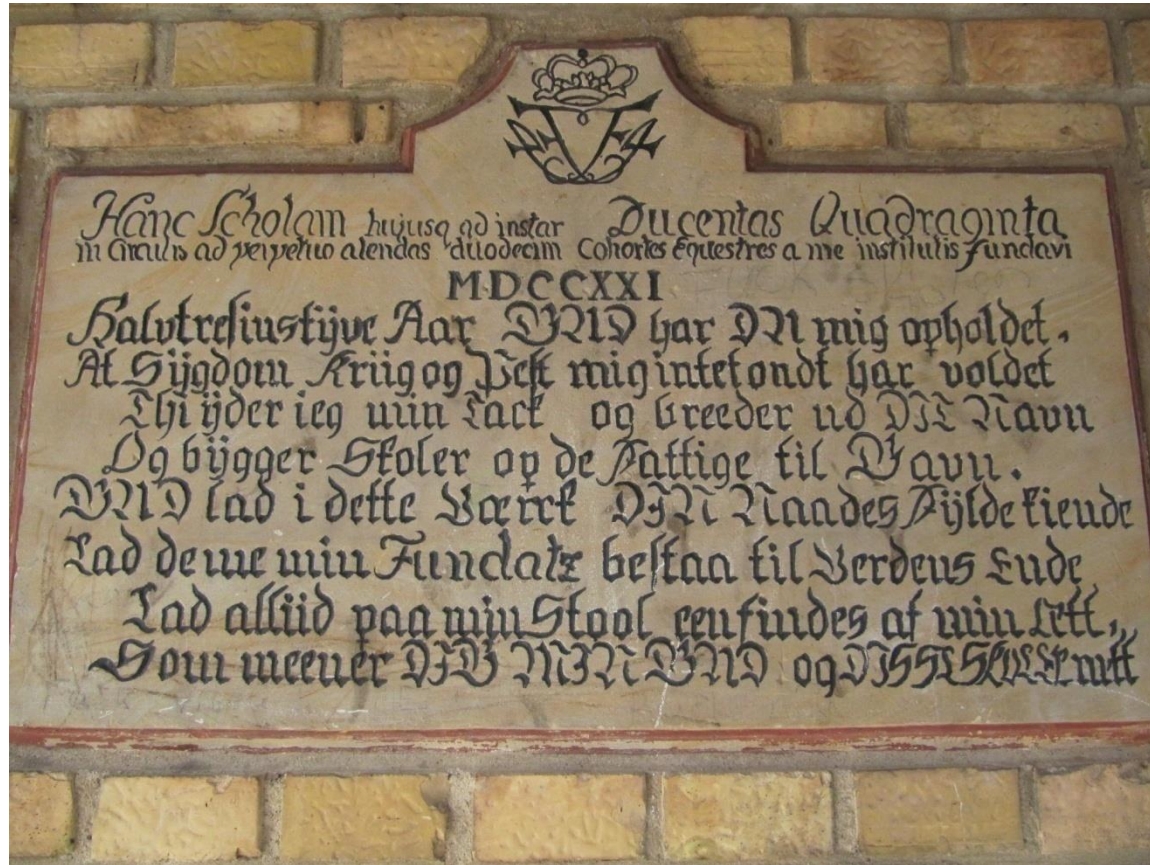 F4
Hanc Scholam hujusq ad instar Ducentas Quadraginta
in Circulis ad perpetuo alendas duodecim Cohortes Equestres a me institutis fundavi
MDCCXXI
Halvtresiustÿve Aar GUD har DU mig opholdet.
At Sÿgdom Kriig og Pest mig intet ondt har voldet
Thi ÿder ieg min Tack og breeder ud DIT Navn
Og bÿgger Skoler op de Fattige til Gavn.
GUD lad i dette Værck DIN Naades Fÿlde kiende
Lad denne min Fundatz bestaa til Verdens Ende
Lad alliid paa min Skool een findes af min Lett,
Som meener DIG MIN GUD og DISSE SKOLLER rett